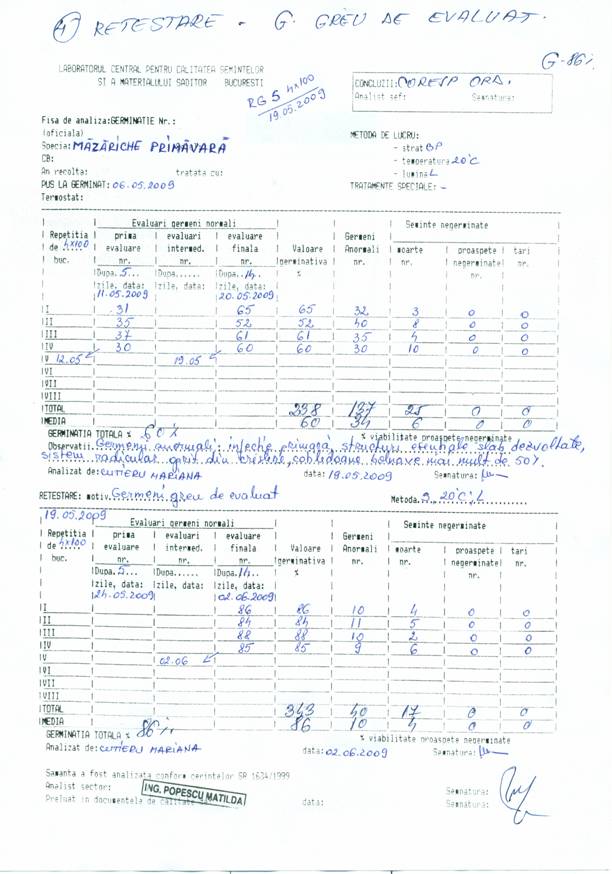 4 RETESTARE - G. GREU DE EVALUAT.
G-86%
LABORATORUL CENTRAL PENTRU CALITATEA SEMINTELOR
SI A MATERIALULUI SADITOR BUCURESTI
RG 5 4x100
19.05.2009
CONCLUZII: CORESP ORD.
Analist sef: Semnatura:
Fisa de analiza:GERMINATIE Nr.:
(oficiala)
Specia: MĂZĂRICHE PRIMĂVARĂ
CB:
An recolta: tratata cu:
PUS LA GERMINAT: 06.05.2009
Termostat:
METODA DE LUCRU:
- strat BP
- temperatura 20°C
- lumina L
TRATAMENTE SPECIALE: -
Evaluari germeni normali Seminte negerminate
Repetitia prima evaluari evaluare Valoare Germeni moarte proaspete tari
de 4x100 evaluare intermed. finala germinativa Anormali nr. negerminate nr.
buc. nr. nr. nr. % nr. nr.
Dupa.5... Dupa...... Dupa.14..
zile, data: zile, data: zile, data:
11.05.2009 20.05.2009
I 31 65 65 32 3 0 0
II 35 52 52 40 8 0 0
III 37 61 61 35 4 0 0
IV 30 60 60 30 10 0 0
V 12.05 19.05
VI
VII
VIII
TOTAL 238 137 25 0 0
MEDIA 60 34 6 0 0
GERMINATIA TOTALA % 60% % viabilitate proaspete negerminate
Observatii Germeni anormali: infecție primară, structuri esențiale slab dezvoltate,
sistem radicular oprit din creștere, cotiledoane bolnave mai mult de 50%.
Analizat de: CUTIERU MARIANA data: 19.05.2009 Semnatura:
RETESTARE: motiv. Germeni greu de evaluat Metoda. 20°C; L
19.05.2009
Evaluari germeni normali Seminte negerminate
Repetitia prima evaluari evaluare Valoare Germeni moarte proaspete tari
de 4x100 evaluare intermed. finala germinativa Anormali nr. negerminate nr.
buc. nr. nr. nr. % nr. nr.
Dupa.5... Dupa...... Dupa.14..
zile, data: zile, data: zile, data:
24.05.2009 02.06.2009
I 86 86 10 4 0 0
II 84 84 11 5 0 0
III 88 88 10 2 0 0
IV 85 85 9 6 0 0
V 02.06
VI
VII
VIII
TOTAL 343 40 17 0 0
MEDIA 86 10 4 0 0
GERMINATIA TOTALA % 86% % viabilitate proaspete negerminate
Analizat de: CUTIERU MARIANA data: 02.06.2009 Semnatura:
Samanta a fost analizata conform cerintelor SR 1634/1999
Analist sector: ING. POPESCU MATILDA Semnatura:
Preluat in documentele de calitate data: Semnatura: